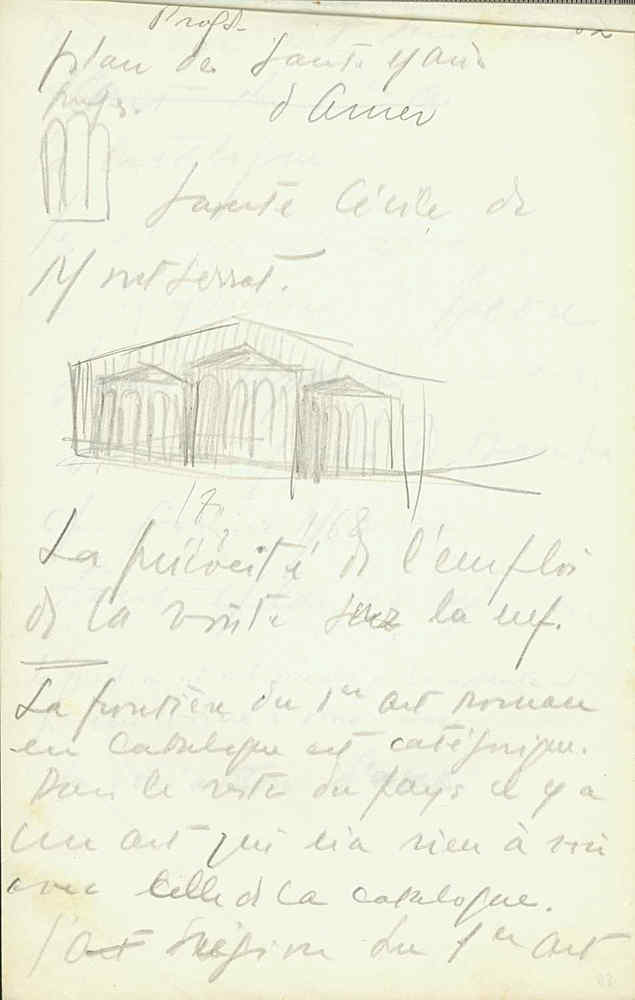 Prof.
plan de Sainte Marie
d'Amer
Sainte Cécile de
Montserrat.
170 1168
La précocité de l'emploi
de la voûte sur la nef.
La frontière du 1er art roman
en Catalogne est catégorique.
Dans le reste du pays il y a
un art qui n'a rien à voir
avec celle de la Catalogne.
du 1er art